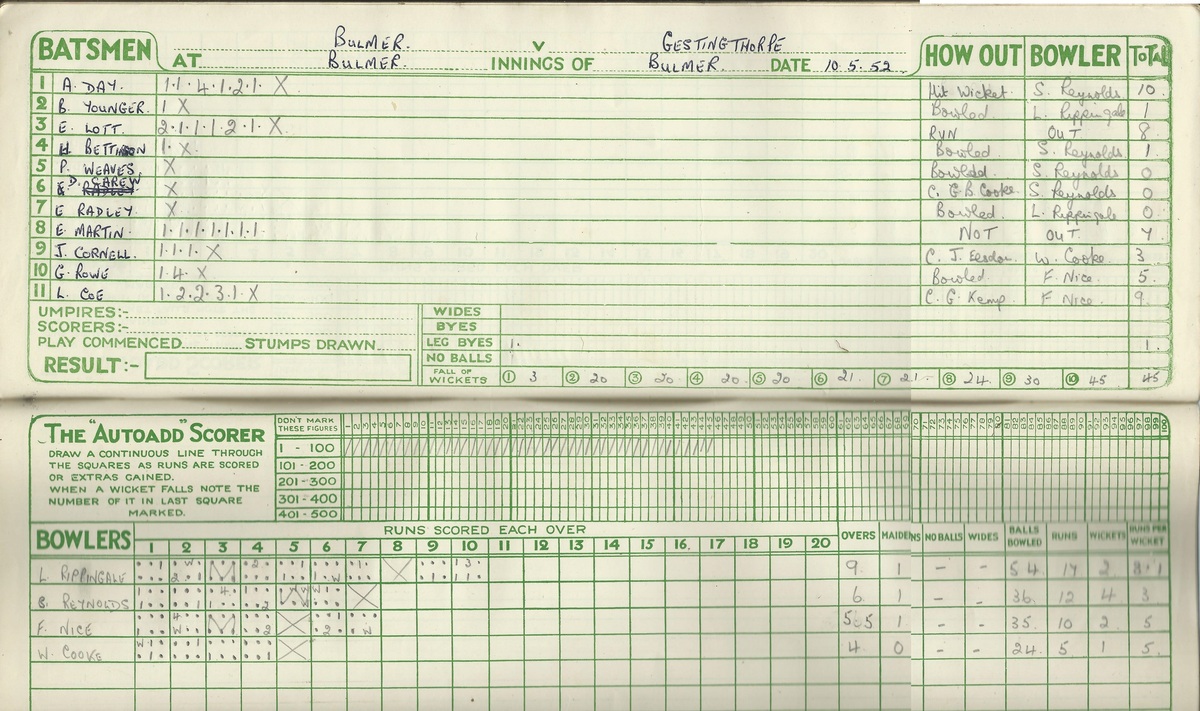 BATSMEN BULMER. V GESTINGTHORPE HOW OUT BOWLER TOTAL
AT BULMER. INNINGS OF BULMER. DATE 10.5.52
1 A. DAY. 1·1·4·1·2·1· X Hit Wicket. S. Reynolds 10
2 B. YOUNGER. 1 X Bowled L. Rippingale 1
3 E. LOTT. 2·1·1·1·2·1· X RUN OUT 8
4 H BETTINSON 1· X Bowled. S. Reynolds 1.
5 P. WEAVES X Bowled. S. Reynolds 0
6 D. CAREW X C. G. B Cooke. S. Reynolds 0
7 E RADLEY. X Bowled. L. Rippingale 0
8 E. MARTIN. 1·1·1·1·1·1·1· NOT OUT. 7
9 J. CORNELL. 1·1·1· X C. J. W. Cooke 3
10 G. ROWE 1·4· X Bowled F. Nice. 5.
11 L. COE 1·2·2·3·1· X C. G. Kemp. F Nice 9.
UMPIRES:- WIDES
SCORERS:- BYES
PLAY COMMENCED STUMPS DRAWN LEG BYES 1. 1.
RESULT:- NO BALLS
FALL OF WICKETS 1 3 2 20 3 20 4 20 5 20 6 21. 7 21. 8 24. 9 30 10 45 45
THE "AUTOADD" SCORER
DRAW A CONTINUOUS LINE THROUGH
THE SQUARES AS RUNS ARE SCORED
OR EXTRAS GAINED.
WHEN A WICKET FALLS NOTE THE
NUMBER OF IT IN LAST SQUARE
MARKED.
DON'T MARK
THESE FIGURES
1 - 100
101 - 200
201 - 300
301 - 400
401 - 500
BOWLERS RUNS SCORED EACH OVER OVERS MAIDENS NO BALLS WIDES BALLS BOWLED RUNS WICKETS RUNS PER WICKET
1 2 3 4 5 6 7 8 9 10 11 12 13 14 15 16. 17 18 19 20
L. RIPPINGALE 9. 1 - - 54 17 2
S. REYNOLDS 6. 1 - - 36. 12 4 3
F. NICE 1 - - 35. 10 2 5
W. COOKE 4. 0 - - 24. 5 1 5.